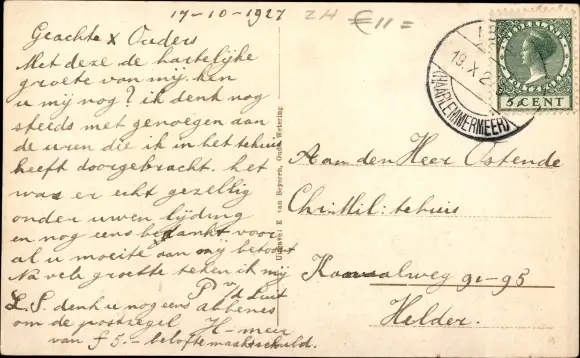 17-10-1927
ZH €11=
Geachte x Ouders
Met deze de hartelijke
groete van mij. Ken
u mij nog? ik denk nog
steeds met genoegen aan
de uren die ik in het tehuis
heeft doorgebracht. het
was er echt gezellig
onder uwen lijding
en nog eens bedankt voor
al u moeite aan mij betoont
Na vele groette teken ik mij
P v/d Luit
L.S. denk u nog eens abbenes
om de postzegel H-meer
van f 5.- belofte maakt schuld.
Uitgave: E van Beyeren, Oude Wetering
19 X 2
(HAARLEMMERMEER)
NEDERLAND
5 CENT
Aan den Heer Ostende
Chr. Mil: tehuis
Kanaalweg 91-95
Helder.